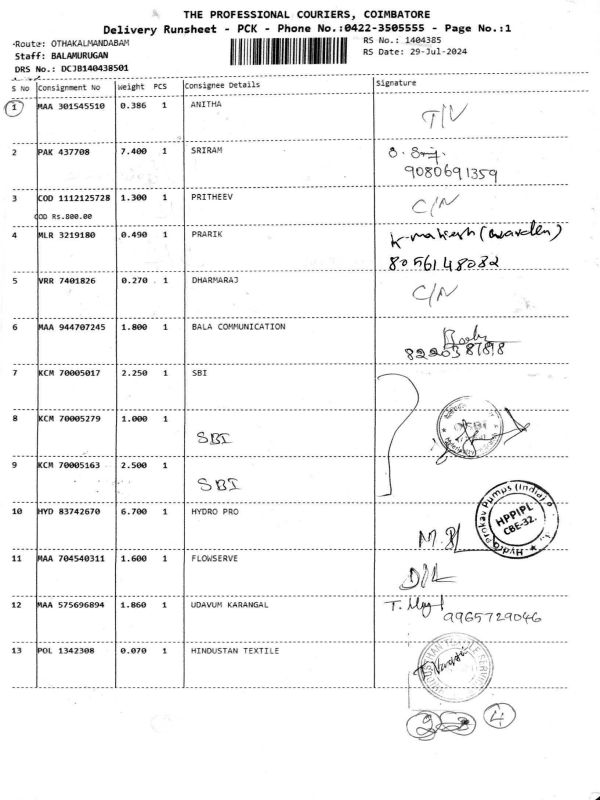 THE PROFESSIONAL COURIERS, COIMBATORE
Delivery Runsheet - PCK - Phone No.:0422-3505555 - Page No.:1
Route: OTHAKALMANDABAM
RS No.: 1404385
Staff: BALAMURUGAN
RS Date: 29-Jul-2024
DRS No.: DCJB140438501
S No Consignment No Weight PCS Consignee Details Signature
1 MAA 301545510 0.386 1 ANITHA
2 PAK 437708 7.400 1 SRIRAM
9080691359
3 COD 1112125728 1.300 1 PRITHEEV C/N
COD Rs.800.00
4 MLR 3219180 0.490 1 PRARIK K-makesh (warden)
8056148082
5 VRR 7401826 0.270 1 DHARMARAJ C/N
6 MAA 944707245 1.800 1 BALA COMMUNICATION
7 KCM 70005017 2.250 1 SBI
8 KCM 70005279 1.000 1
SBI
9 KCM 70005163 2.500 1
SBI
10 HYD 83742670 6.700 1 HYDRO PRO
Hydro Prokav Pumps (India) P.
HPPIPL
CBE-32.
11 MAA 704540311 1.600 1 FLOWSERVE
D/L
12 MAA 575696894 1.860 1 UDAVUM KARANGAL
9965729046
13 POL 1342308 0.070 1 HINDUSTAN TEXTILE
4